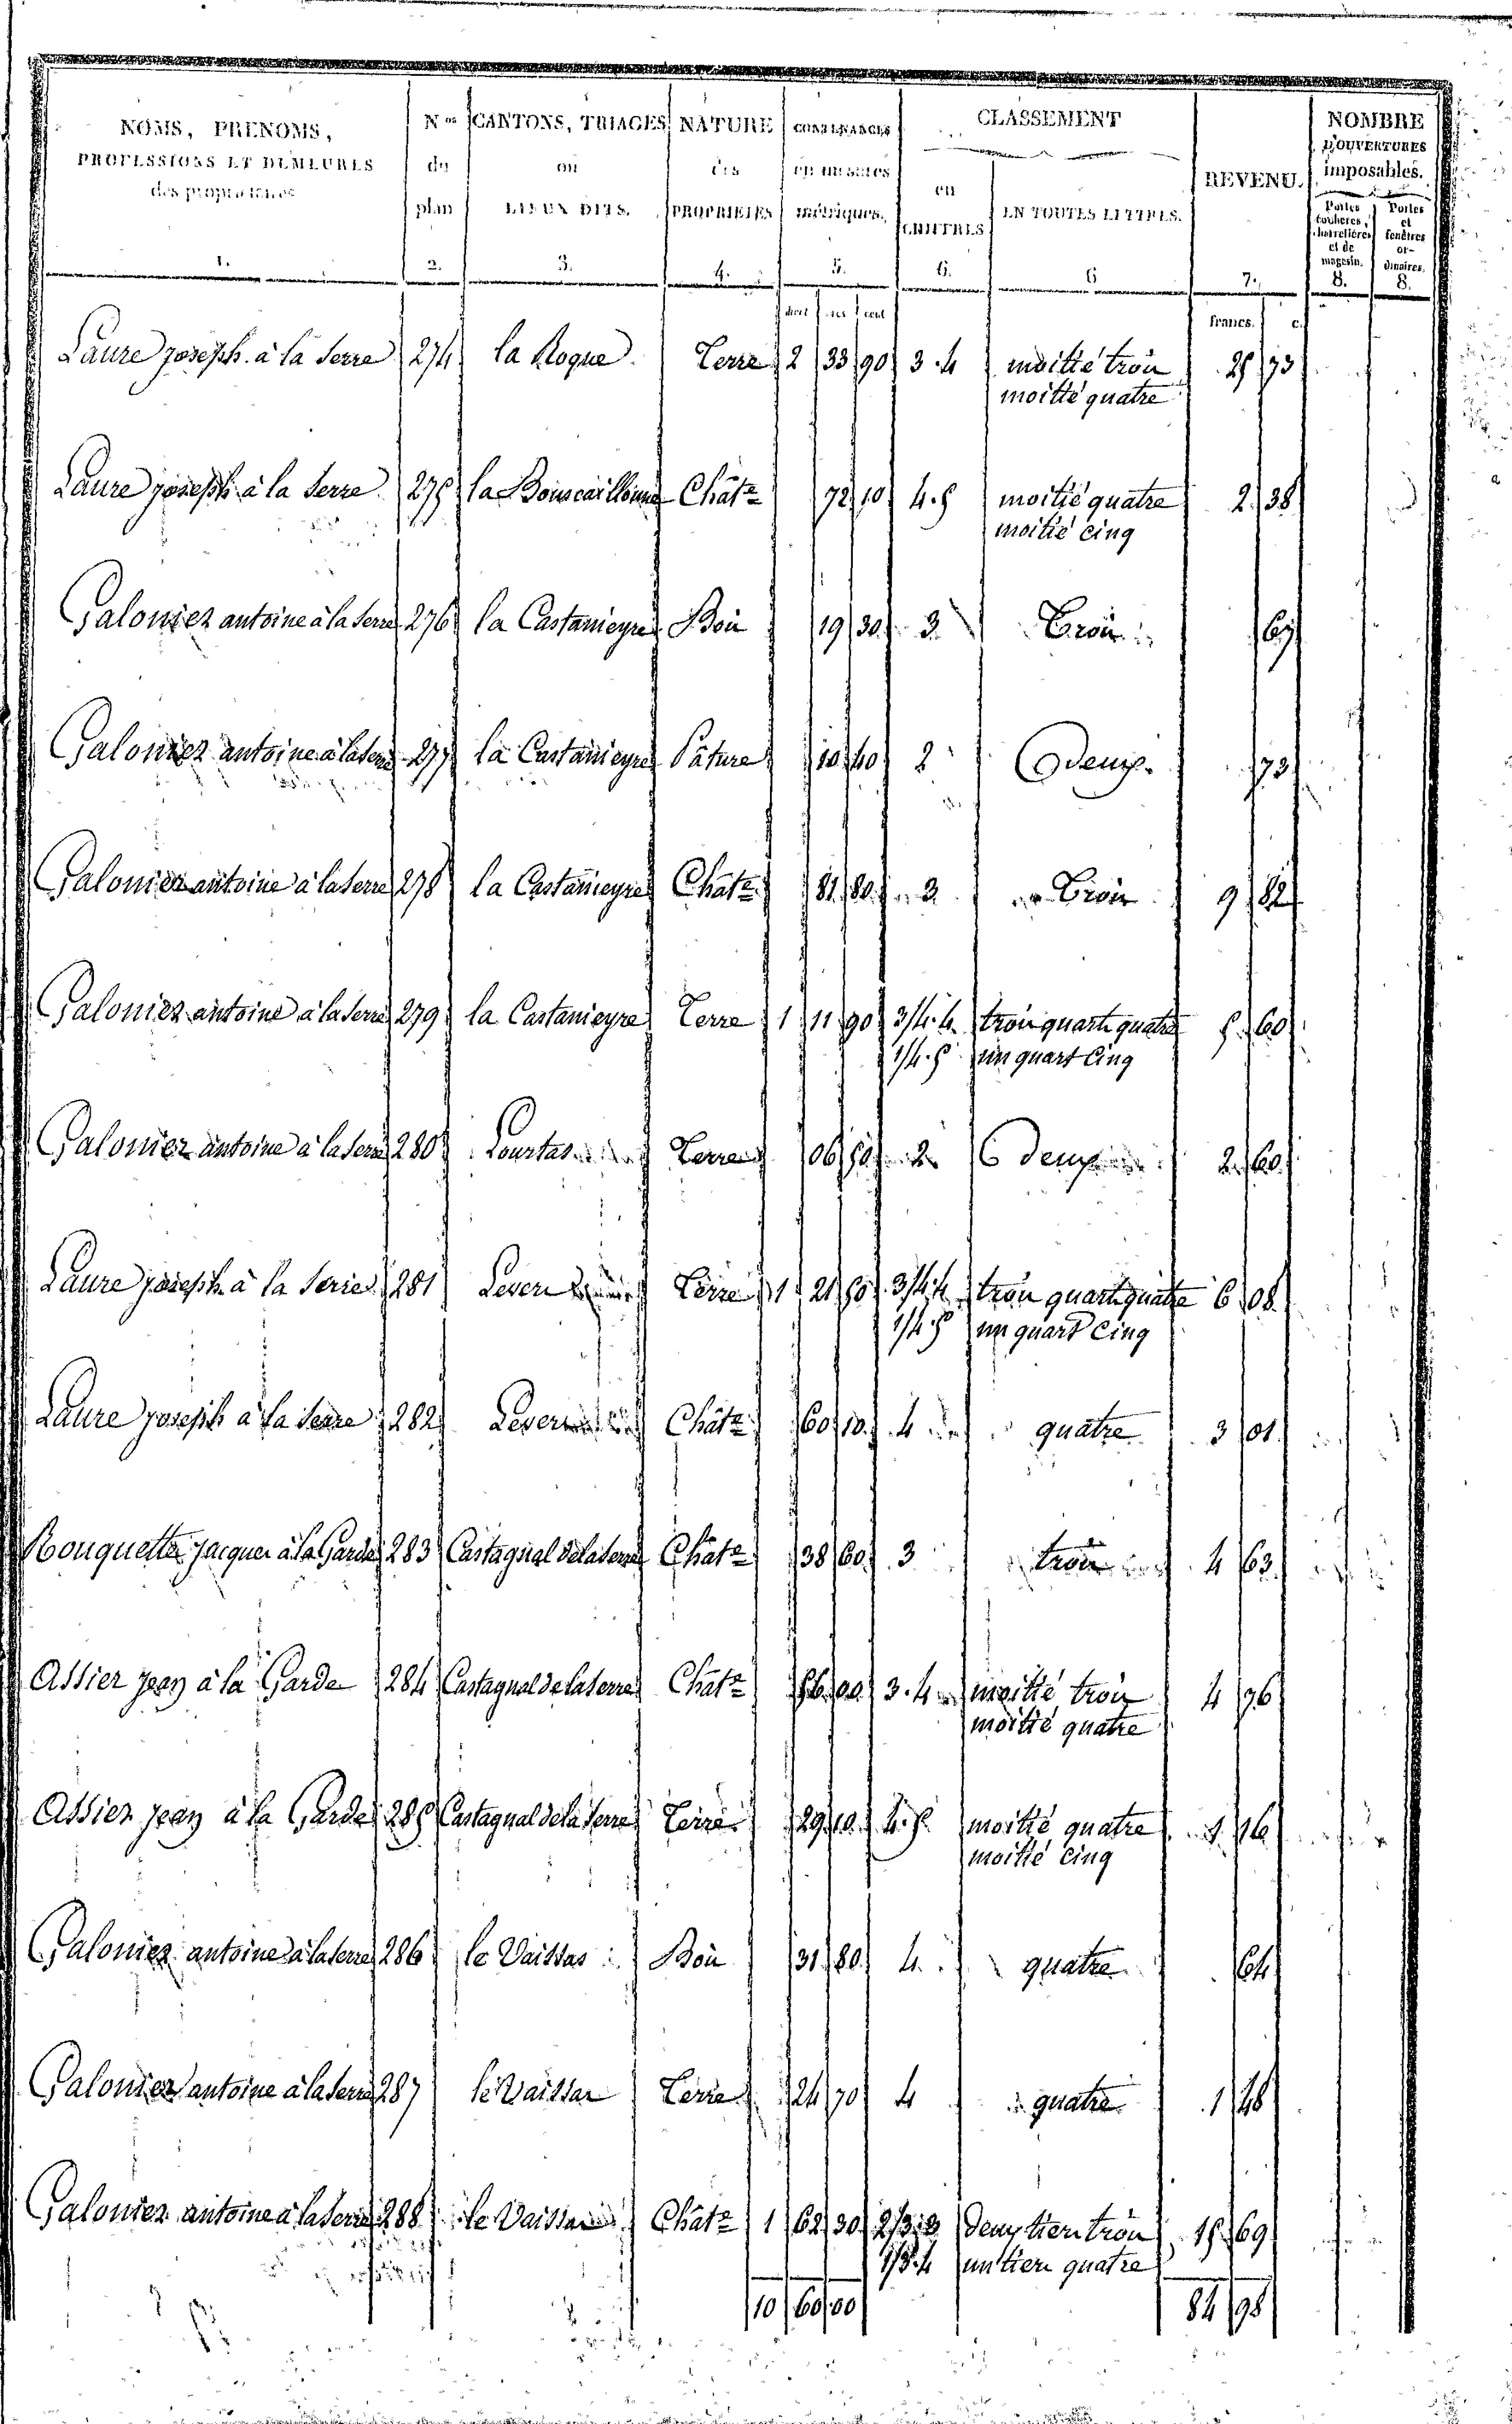 NOMS, PRENOMS, N.os CANTONS, TRIAGES NATURE CONTENANCES CLASSEMENT REVENU. NOMBRE
PROFESSIONS ET DEMEURES du ou des en mesures en D'OUVERTURES
des propriétaires plan LIEUX DITS. PROPRIETES métriques. CHIFFRES EN TOUTES LETTRES. imposables.
Portes cochères, charretières et de magasin. Portes et fenêtres ordinaires.
1. 2. 3. 4. 5. 6. 6 7. 8. 8.
hect ares cent francs. c.
Laure joseph à la Serre 274 la Roque Terre 2 33 90 3.4 moitié trois 25 73
moitié quatre
Laure joseph à la Serre 275 la Chât.e 72 10 4.5 moitié quatre 2 38
moitié cinq
Galonier antoine à la Serre 276 la Castanieyre Bois 19 30 3 Trois 67
Galonier antoine à la Serre 277 la Castanieyre Pâture 10 40 2 deux 73
Galonier antoine à la Serre 278 la Castanieyre Chât.e 81 80 3 Trois 9 82
Galonier antoine à la Serre 279 la Castanieyre Terre 1 11 90 3/4.4 trois quarts quatre 5 60
1/4.5 un quart Cinq
Galonier antoine à la Serre 280 Terre 06 50 2 deux 2 60
Laure joseph à la Serre 281 Terre 1 21 50 3/4.4 trois quarts quatre 6 08
1/4 5 un quart Cinq
Laure joseph à la Serre 282 Chât.e 60 10 4 quatre 3 01
Rouquette jacques à la Garde 283 Castagnal de la serre Chât.e 38 60 3 trois 4 63
Assier jean à la Garde 284 Castagnal de la serre Chât.e 56 00 3.4 moitié trois 4 76
moitié quatre
Assier jean à la Garde 285 Castagnal de la Serre Terre 29 10 4.5 moitié quatre 1 16
moitié Cinq
Galonier antoine à la serre 286 le Vaissas Bois 31 80 4 quatre 64
Galonier antoine à la serre 287 le Vaissas Terre 24 70 4 quatre 1 48
Galonier antoine à la serre 288 le Vaissas Chât.e 1 62 30 2/3.3 deux tiers trois 15 69
1/3.4 un tiers quatre
10 60 00 84 98